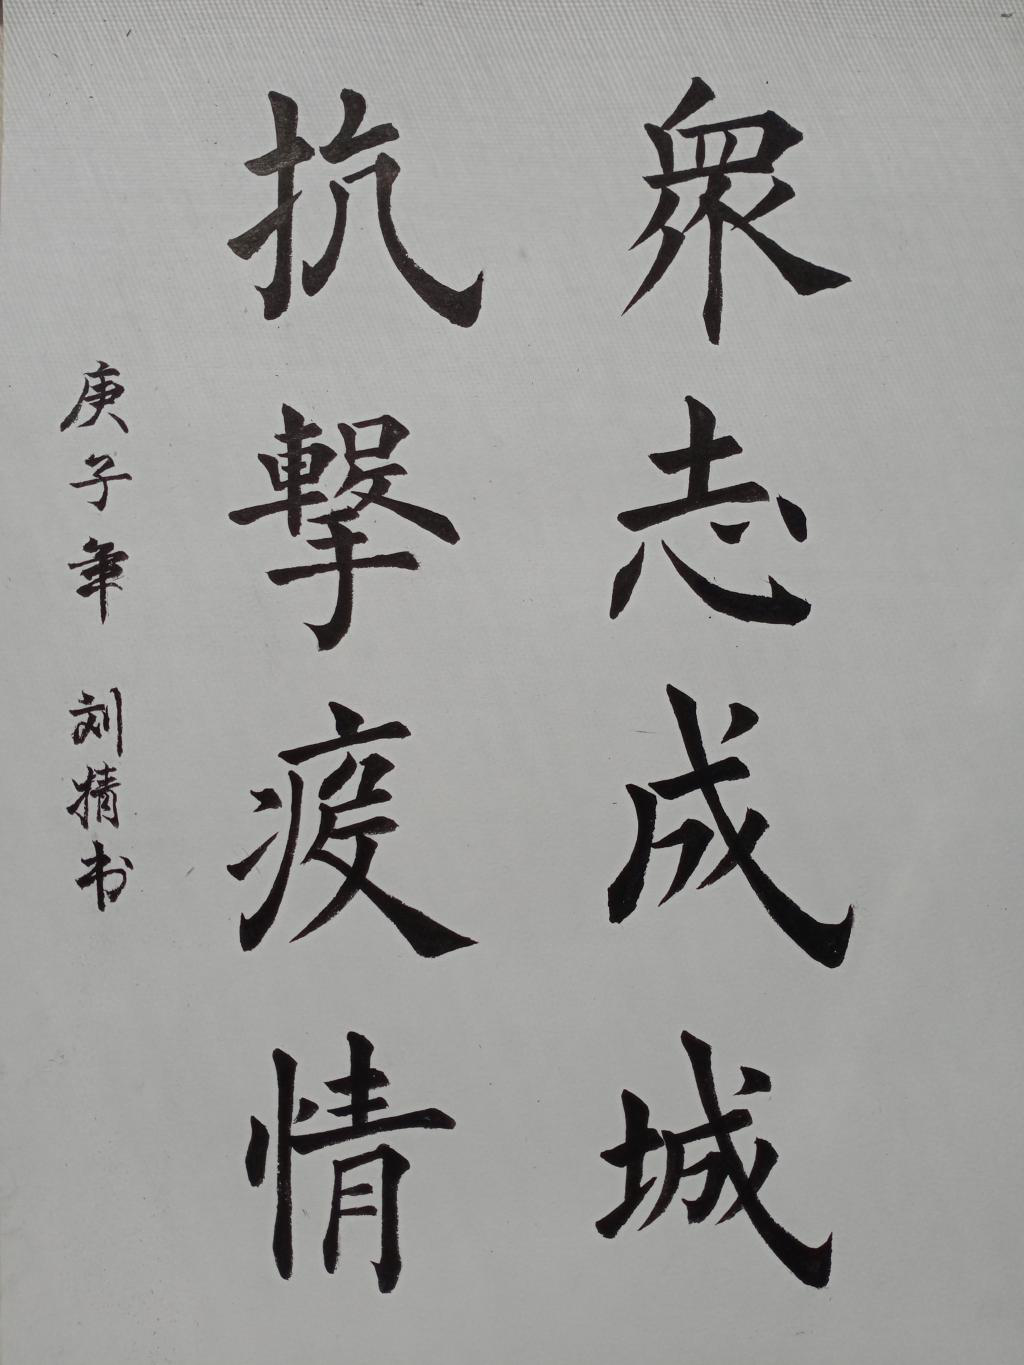 眾志成城
抗擊疫情
庚子年 刘精书